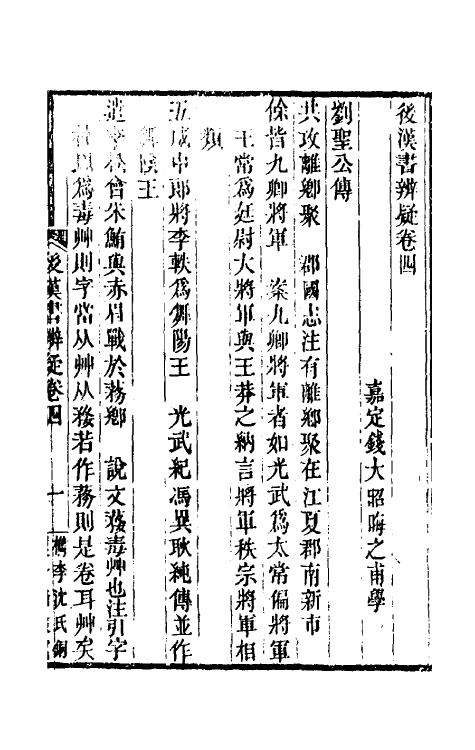 後漢書辨疑卷四
嘉定錢大昭晦之甫學
劉聖公傳
共攻離鄉聚 郡國志注有離鄉聚在江夏郡南新市
餘皆九卿將軍 案九卿將軍者如光武爲太常偏將軍
王常爲廷尉大將軍與王莽之納言將軍秩宗將軍相
類
五威中郎將李軼爲舞陽王 光武紀馮異耿純傳並作
舞陰王
遣李松會朱鮪與赤眉戰於蓩鄉 說文蓩毒艸也注引字
爲毒艸則字當从艸从務若作蓩則是卷耳艸矣
後漢書辨疑卷四
一
檇李沈氏銅